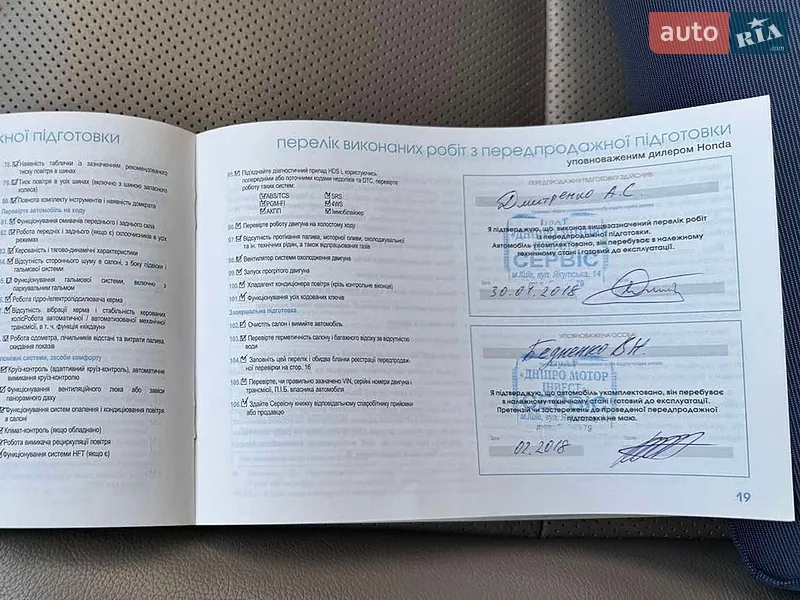 auto RIA .com
жної підготовки
78. Наявність таблички із зазначенням рекомендованого
тиску повітря в шинах
79. Тиск повітря в усіх шинах (включно з шиною запасного
колеса)
80. Повнота комплекту інструментів і наявність домкрата
Перевірте автомобіль на ходу
81. Функціонування омивачів переднього і заднього скла
82. Робота передніх і заднього (якщо є) склоочисників в усіх
режимах
Керованість і тягово-динамічні характеристики
Відсутність стороннього шуму в салоні, з боку підвіски і
гальмової системи
Функціонування гальмової системи, включно з
паркувальним гальмом
Робота гідро-/електропідсилювача керма
Відсутність вібрації керма і стабільність керованих
Робота автоматичної / автоматизованої / механічної
трансмісії, в т. ч. функція «кікдаун»
Робота одометра, лічильників відстані та витрати палива,
скидання показів
системи, засоби комфорту
Круїз-контроль (адаптивний круїз-контроль), автоматичне
вимикання круїз-контролю
Функціонування вентиляційного люка або завіси
панорамного даху
Функціонування систем опалення і кондиціювання повітря
в салоні
Клімат-контроль (якщо обладнано)
Робота вимикача рециркуляції повітря
Функціонування системи HFT (якщо є)
перелік виконаних робіт з передпродажної підготовки
уповноваженим дилером Honda
95. Під'єднайте діагностичний прилад HDS і, користуючись
попередніми або поточними кодами недоліків та DTC, перевірте
роботу таких систем:
ABS/TCS SRS
PGM-FI 4WS
АКПП Іммобілайзер
96. Перевірте роботу двигуна на холостому ходу
97. Відсутність протікання палива, моторної оливи, охолоджувальної
та ін. технічних рідин, а також відпрацьованих газів
98. Вентилятор системи охолодження двигуна
99. Запуск прогрітого двигуна
100. Хладагент кондиціонера повітря (крізь контрольне віконце)
101. Функціонування усіх кодованих ключів
Завершальна підготовка
102. Очистіть салон і вимийте автомобіль
103. Перевірте герметичність салону і багажного відсіку за відсутністю
води
104. Заповніть цей перелік і обидва бланки реєстрації передпродаж-
ної перевірки на стор. 16
105. Перевірте, чи правильно зазначено VIN, серійні номери двигуна і
трансмісії, П.І.Б. власника автомобіля
106. Здайте Сервісну книжку відповідальному співробітнику приймом
або продавцю
ПЕРЕДПРОДАЖНУ ПІДГОТОВКУ ЗДІЙСНИВ:
Дмитренко А.С.
Я підтверджую, що виконав вищезазначений перелік робіт
із передпродажної підготовки.
Автомобіль укомплектовано, він перебуває в належному
технічному стані і готовий до експлуатації.
СЕРВІС
м.Київ, вул. Якутська, 14
30.01.2018
УПОВНОВАЖЕНА ОСОБА
Бедненко В.Н.
«ДНІПРО МОТОР
ІНВЕСТ»
Я підтверджую, що автомобіль укомплектовано, він перебуває
в належному технічному стані і готовий до експлуатації.
Претензій чи застережень до проведеної передпродажної
підготовки не маю.
02.2018
19